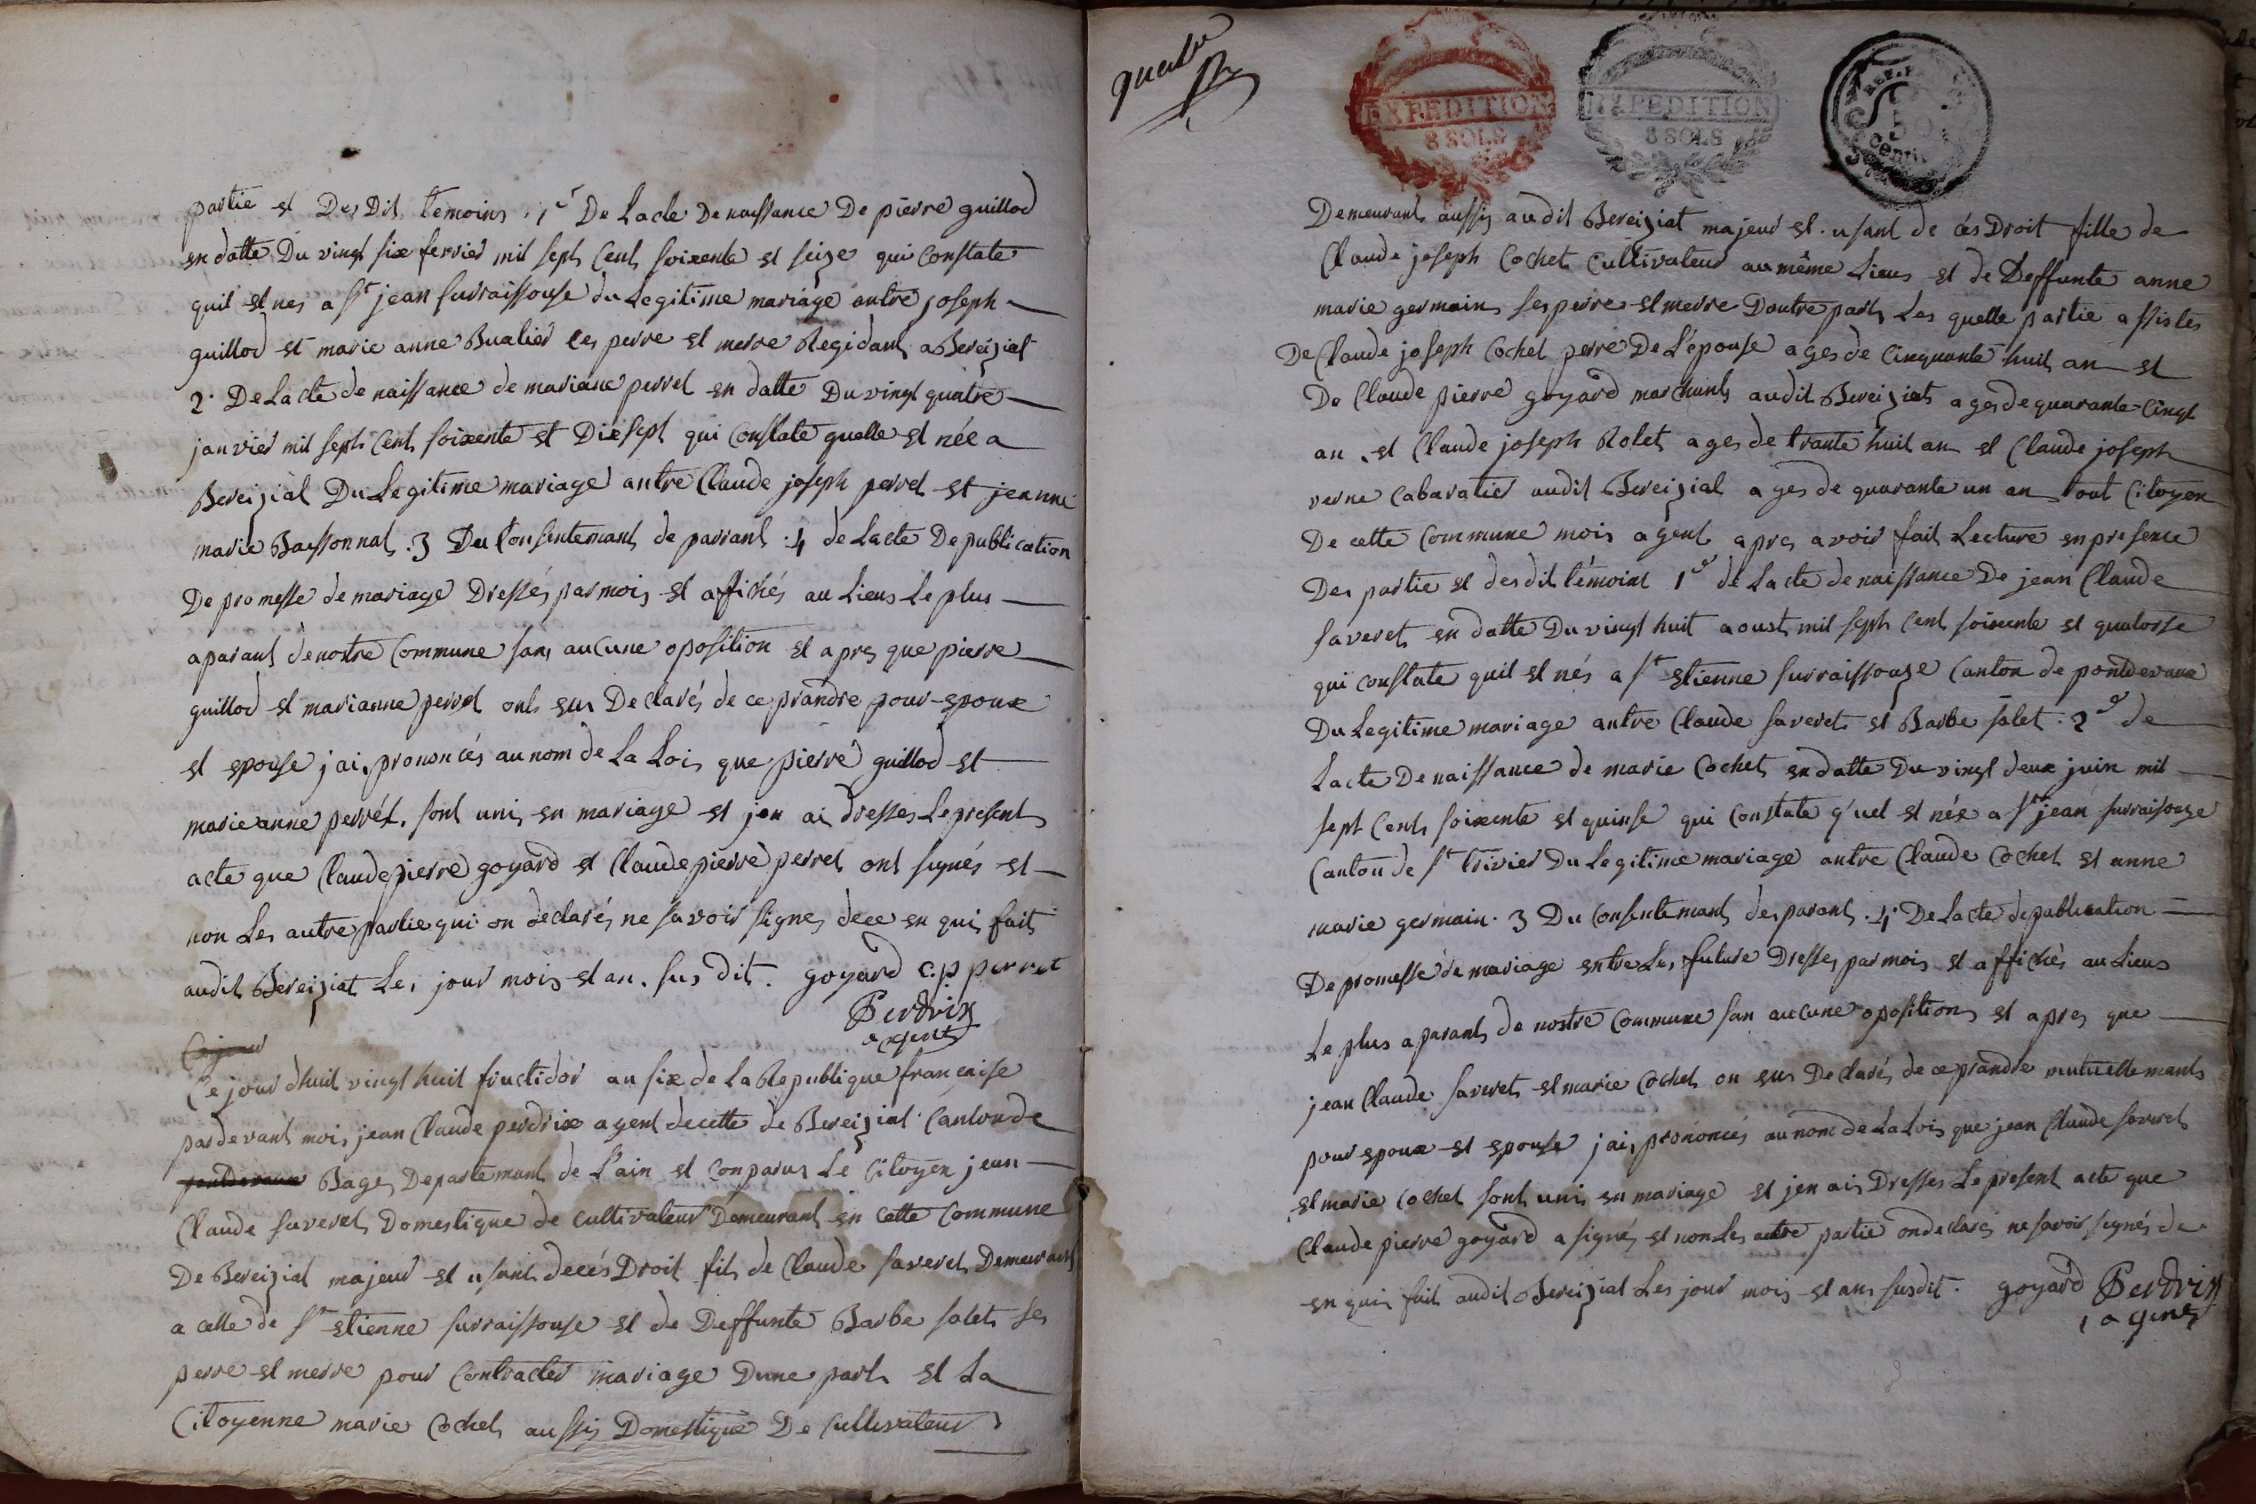 partie et Des Dit temoins . 1e De Lacte De naissance De pierre guillod
en datte Du vingt six fevrier mil sept Cent soixente et seize qui Constate
quil et nes a St jean surraissouse du Legitime mariage autre joseph
guillod et marie anne Bualier ces perre et merre Regidant a Bereiziat
2. De Lacte de naissance de mariane perret en datte Du vingt quatre
janvier mil sept Cent soixente et Dixsept qui Constate quelle et née a
Bereizial Du Legitime mariage autre Claude joseph perret et jeanne
marie . 3 Du Consentemant de parrant . 4 de Lacte De publication
De promesse de mariage Dressés par mois et affichés au Lieus Le plus
aparant de nostre Commune sans aucune oposition et apres que pierre
guillod et marianne perret onts eus Declarés de ce prandre pour epoux
et epouse jai prononcés au nom de La Lois que pierre guillod et
marie anne perrét sont unis en mariage et jen ai dresses Le present
acte que Claude pierre goyard et Claude pierre perret ont signés et
non Les autre partie qui on declarés ne savoir signes de ce en qui fait
audit Bereiziat Les jour mois et an . sus dit . goyard c.p perret
Perdrix
agent
Ce jour
Ce jour dhuit vingt huit fructidor an six de La Republique francaise
par devant mois jean Claude perdrix agent de cette de Bereizial Canton de
pontdevaux Bages Departemant de Lain et Conparus Le Citoyen jean
Claude saveret Domestique de cultivateur Demeurant en cette Commune
De Bereizial majeur et usant de cés Droit fils de Claude saveret Demeurant
a celle de St etienne surraissouse et de Deffunte Barbe salet ses
perre et merre pour Contracter mariage Dune part et La
Citoyenne marie Cochet aussis Domestique De Cultivateur
quatre
EXPEDITION
8 SOLS
EXPEDITION
8 SOLS
REP. FRA
50
Centi
Demeurant aussis audit Bereiziat majeur et . usant de cés Droit fille de
Claude joseph Cochet Cultivateur au même Lieus et de Deffunte anne
marie germain ses perre et merre Dautre part Les quelle partie assistes
De Claude joseph Cochet perre De Lépouse ages de Cinquante huit an et
De Claude pierre goyard marchant audit Bereiziat ages de quarante Cinqt
an . et Claude joseph Rolet ages de trante huit an et Claude joseph
verne Cabaratier audit Bereizial ages de quarante un an tout Citoyen
De cette Commune mois agent apres avoir fait Lecture en presence
Des partie et desdit témoint 1e de Lacte de naissance De jean Claude
saveret en datte Du vingt huit aoust mil sept Cent soixente et quatorse
qui constate quil et nés a St etienne surraissouze Canton de pontdevaux
Du Legitime mariage autre Claude saveret et Barbe salet . 2e de
Lacte De naissance de marie Cochet en datte Du vingt deux juin mil
sept Cent soixente et quinse qui Constate q'uel et née a St jean surraisouze
Canton de St trivier Du Legitime mariage autre Claude Cochet et anne
marie germain . 3 Du Consentemant des parant . 4. De Lacte de publication
De promesse de mariage entre Les future Dresses par mois et affichés au Lieus
Le plus aparant de nostre Commune san aucune oposition et apres que
jean Claude saveret et marie Cochet on eus Declarés de ce prandre mutuellemant
pour epoux et epouse jais prononcés au nom de La Lois que jean Claude saveret
et marie Cochet sont unis en mariage et jen ais Dresses Le present acte que
Claude pierre goyard a signés et non Les autre partie on declarés ne savoir signés de
en quis fait audit Bereizial Les jour mois et ans susdit . goyard Perdrix
agent